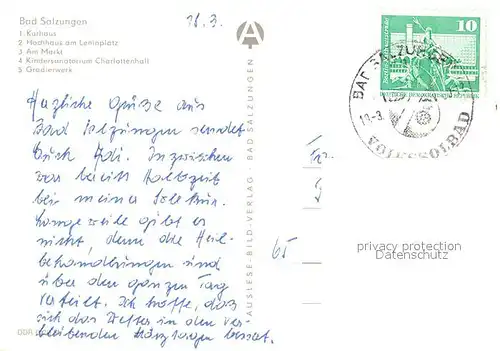 Bad Salzungen
1 Kurhaus
2 Hochhaus am Leninplatz
3 Am Markt
4 Kindersanatorium Charlottenhall
5 Gradierwerk
18.3.
Herzliche Grüße aus
Bad Salzungen sendet
Euch Adi. Inzwischen
war bereits Halbzeit
bei meiner Solekur.
Langeweile gibt es
nicht, denn die Heil-
behandlungen sind
über den ganzen Tag
verteilt. Ich hoffe, daß
sich das Wetter in den ver-
bleibenden Märztagen bessert.
DDR
AUSLESE-BILD-VERLAG · BAD SALZUNGEN
10
DEUTSCHE DEMOKRATISCHE REPUBLIK
BAD SALZUNGEN
18.-3.
VOLKSSOLBAD
65
privacy protection
Datenschutz